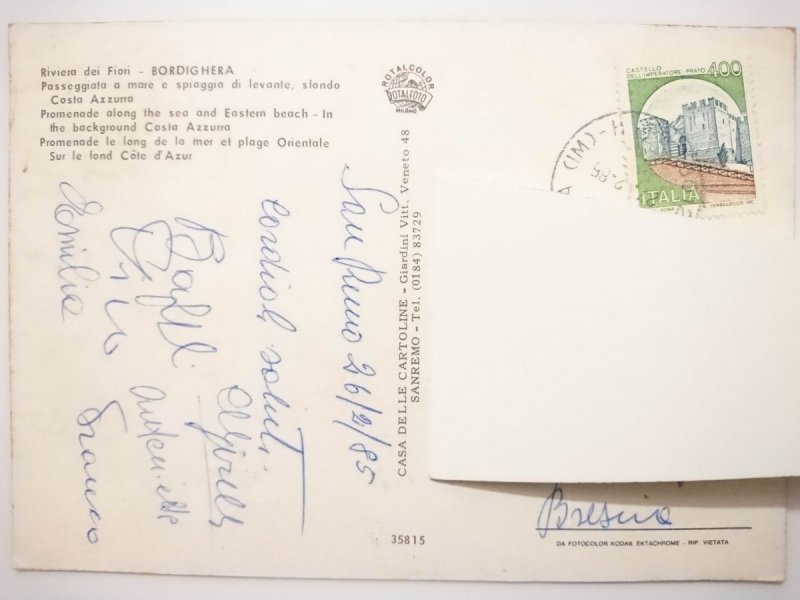 Riviera dei Fiori - BORDIGHERA
Passeggiata a mare e spiaggia di levante, sfondo
Costa Azzurra
Promenade along the sea and Eastern beach - In
the background Costa Azzurra
Promenade le long de la mer et plage Orientale
Sur le fond Côte d'Azur
ROTALCOLOR
ROTALFOTO
MILANO
CASTELLO
DELL'IMPERATORE - PRATO
400
ITALIA
(IM)
2.85
San Remo 26/2/85
Cordiali saluti
Antonietta
Emilia
Franco
CASA DELLE CARTOLINE - Giardini Vitt. Veneto 48
SANREMO - Tel. (0184) 83729
Brescia
35815
DA FOTOCOLOR KODAK EKTACHROME - RIP. VIETATA